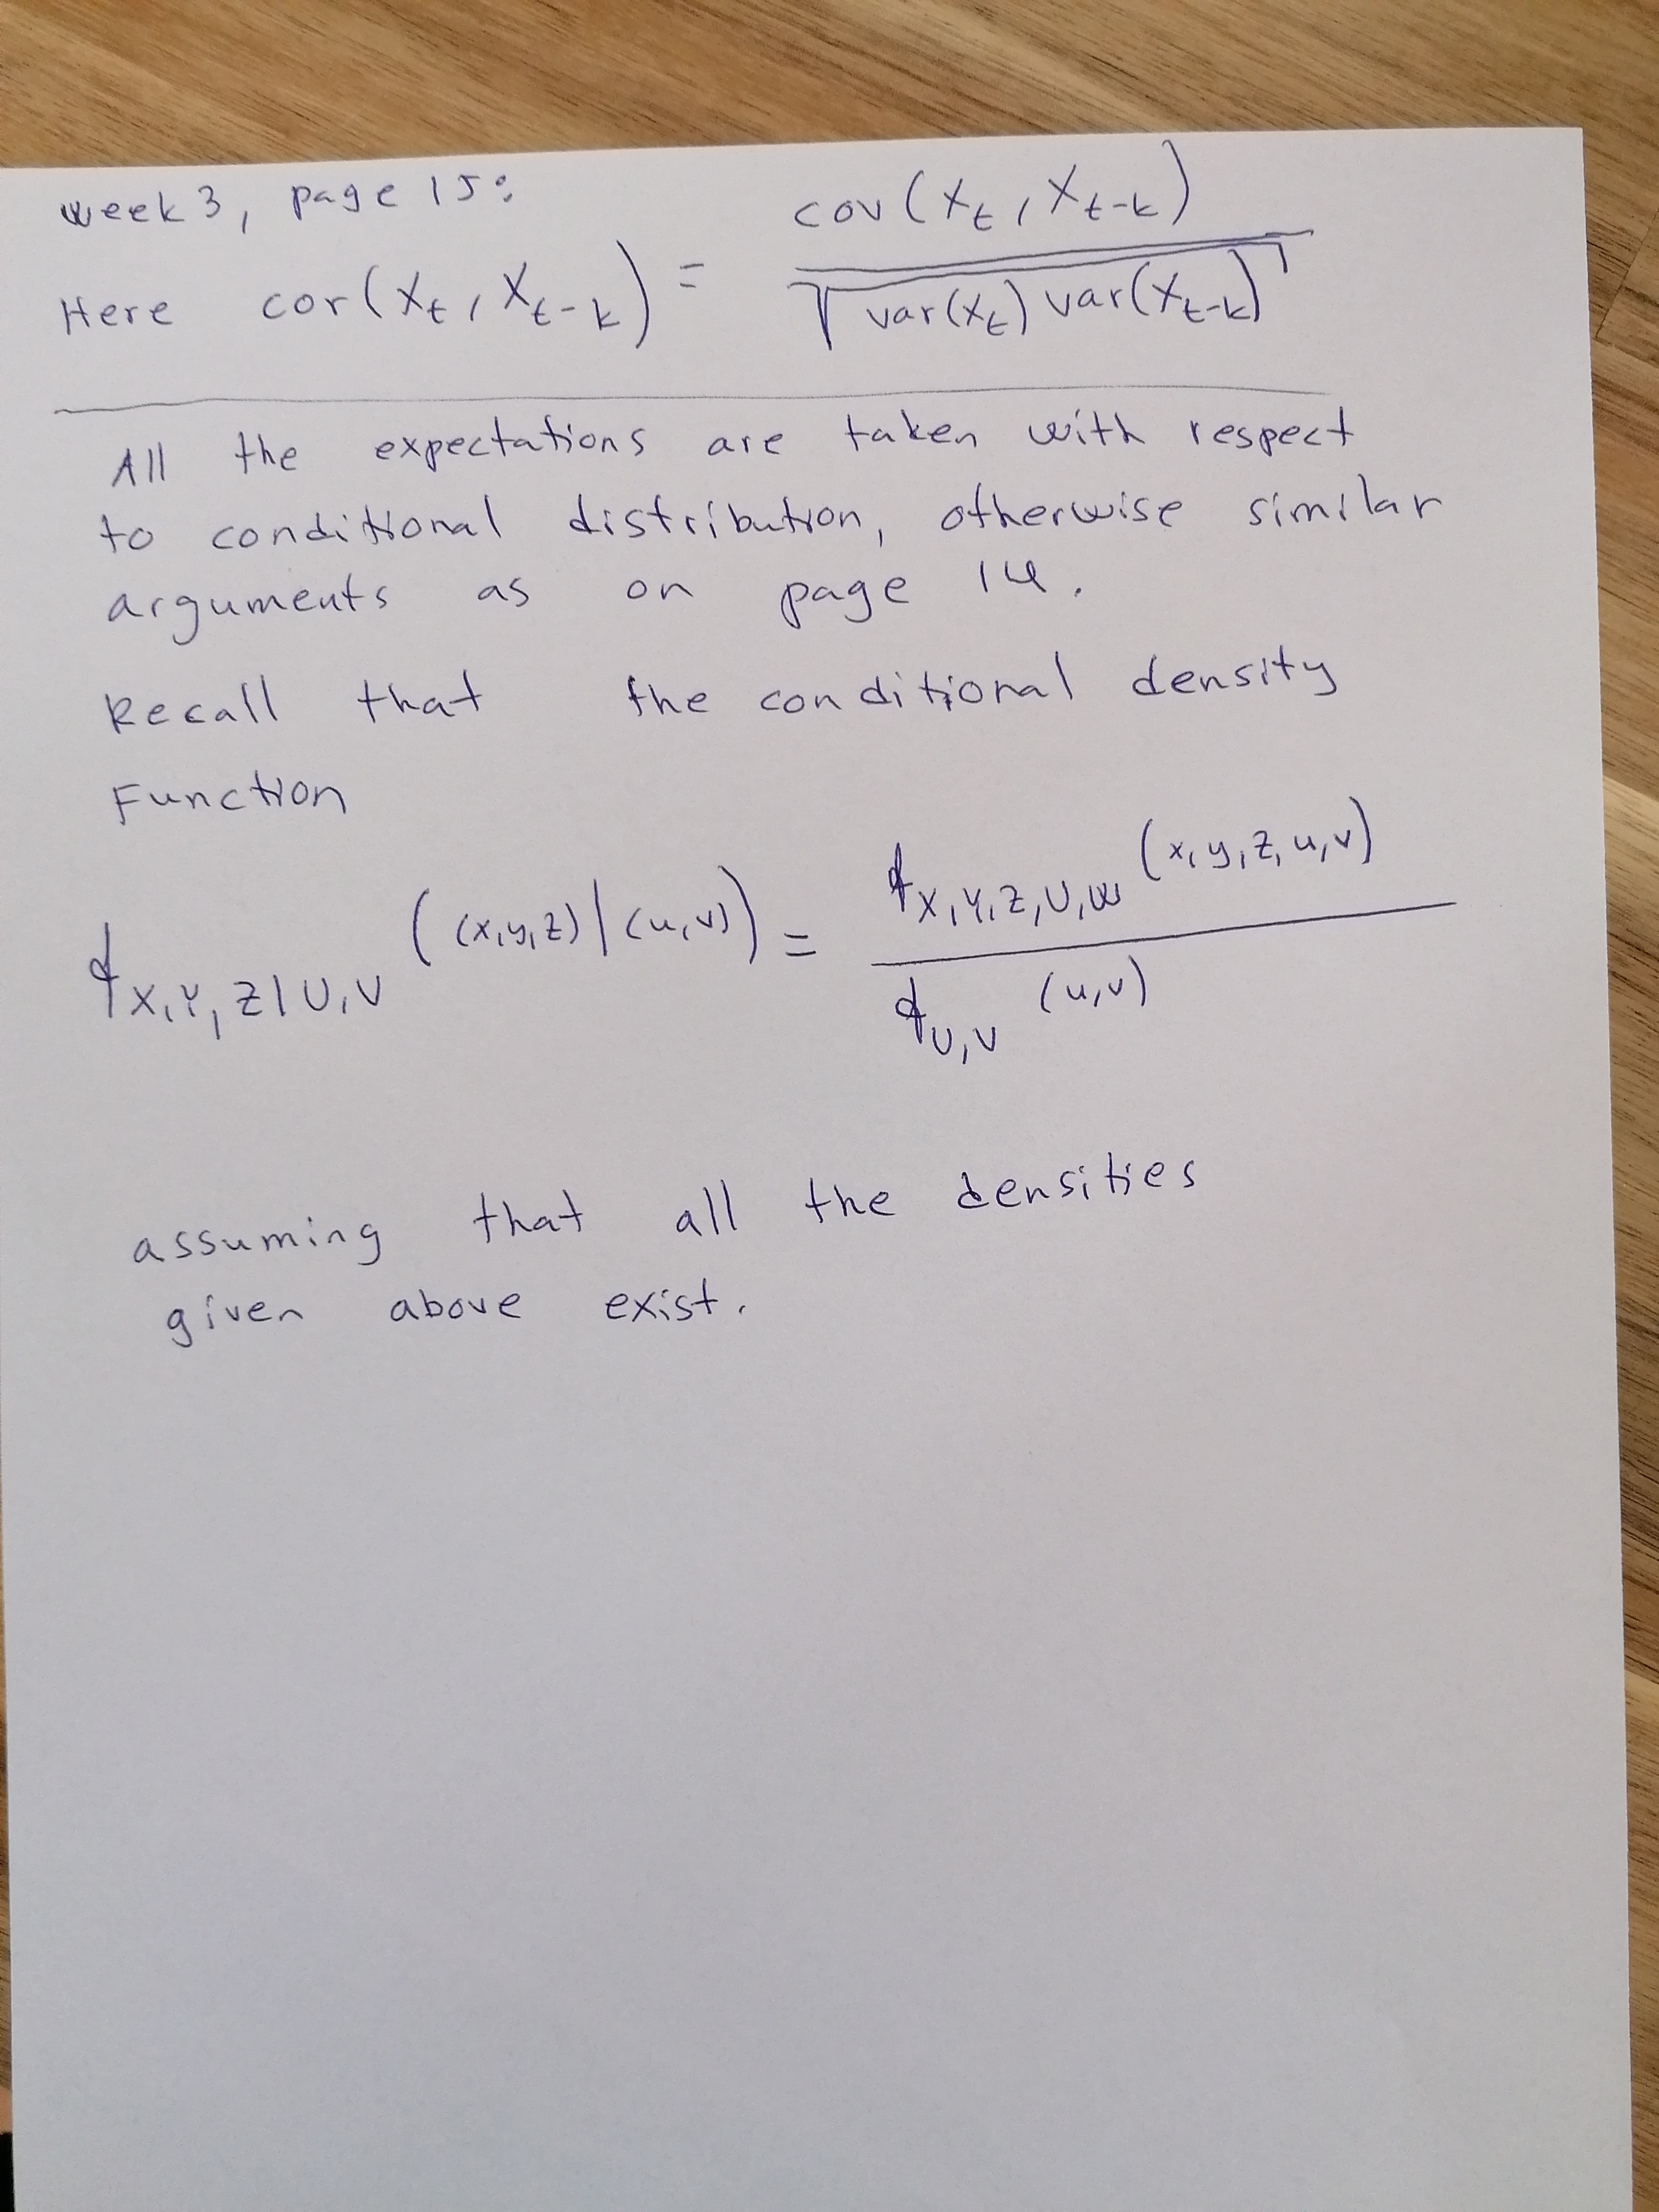 week 3, page 15:
Here cor(X_t, X_{t-k}) = cov(X_t, X_{t-k}) / √(var(X_t) var(X_{t-k}))
All the expectations are taken with respect
to conditional distribution, otherwise similar
arguments as on page 14.
Recall that the conditional density
Function
f_{X,Y,Z|U,V}((x,y,z)|(u,v)) = f_{X,Y,Z,U,W}(x,y,z,u,v) / f_{U,V}(u,v)
assuming that all the densities
given above exist.